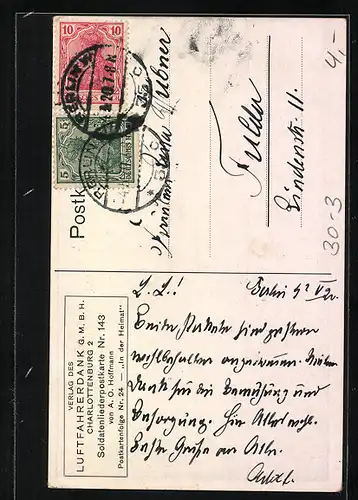 Postk
10
5
BERLIN
Hübner
Fulda
Lindenstr. 11.
4,-
30-3
VERLAG DES
LUFTFAHRERDANK G.M.B.H.
CHARLOTTENBURG 2
Soldatenliederpostkarte Nr. 143
von A. O. Hoffmann
Postkartenfolge Nr. 24 — „In der Heimat"
L. L.! Berlin
Beide Pakete sind gestern
wohlbehalten angekommen. Vielen
Dank für die Bemühung und
Besorgung. Hier Alles wohl.
Beste Grüße an Alle.